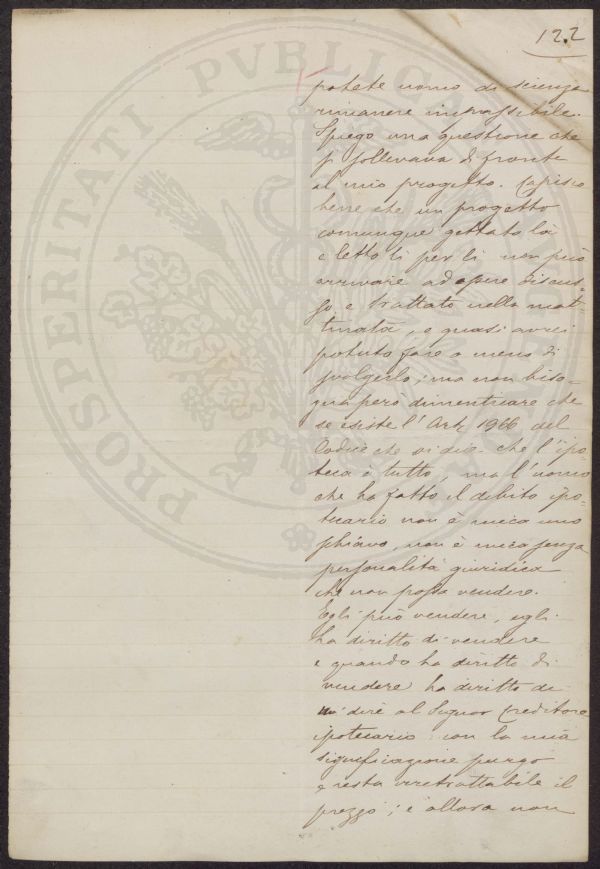 122
potete uomo di scienza
rimanere impassibile.
Spiego una questione che
si sollevava di fronte
al mio progetto. Capisco
bene che un progetto
comunque gettato là
e letto lì per lì non può
arrivare ad essere discus-
so e trattato nella mat-
tinata, e quasi avrei
potuto fare a meno di
svolgerlo; ma non biso-
gna però dimenticare che
se esiste l'Art. 1966 del
Codice che vi dice che l'ipo-
teca è tutto, ma l'uomo
che ha fatto il debito ipo-
tecario non è mica uno
schiavo, non è mica senza
personalità giuridica
che non possa vendere.
Egli può vendere, egli
ha diritto di vendere
e quando ha diritto di
vendere ha diritto di
dire al Signor Creditore
ipotecario: con la mia
significazione purgo
e resta irretrattabile il
prezzo; e allora non
PROSPERITATI PVBLICAE